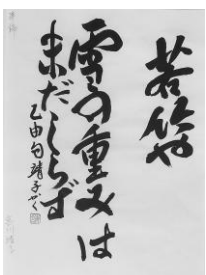 若竹や
雪の重みは
未だしらず
乙由句靖子かく